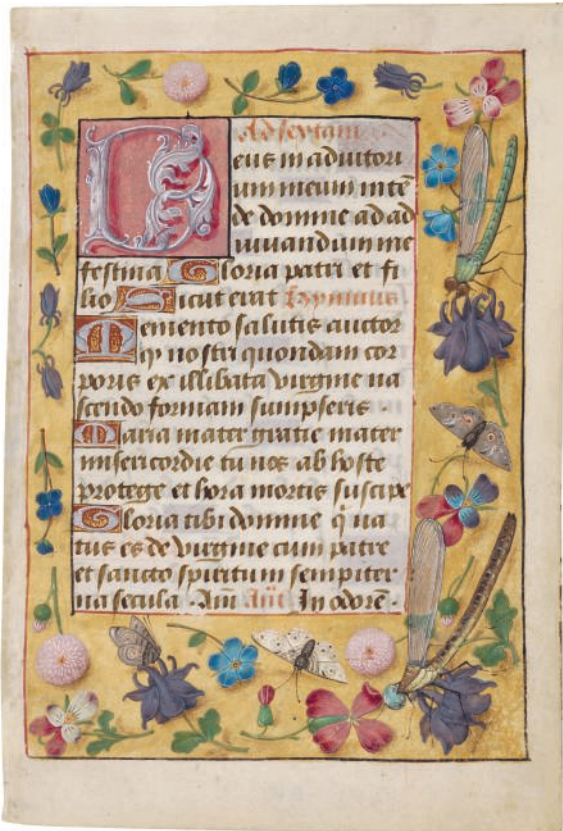 Ad sextam
Deus in adiutori
um meum inte
de domine ad ad
iuuandum me
festina Gloria patri et fi
lio Sicut erat Hymnus
Memento salutis auctor
q nostri quondam cor
poris ex illibata virgine na
scendo formam sumpseris .
Maria mater gratie mater
misericordie tu nos ab hoste
protege et hora mortis suscipe
Gloria tibi domine q na
tus es de virgine cum patre
et sancto spiritu in sempiter
na secula . Am̄ Añ In odorē .